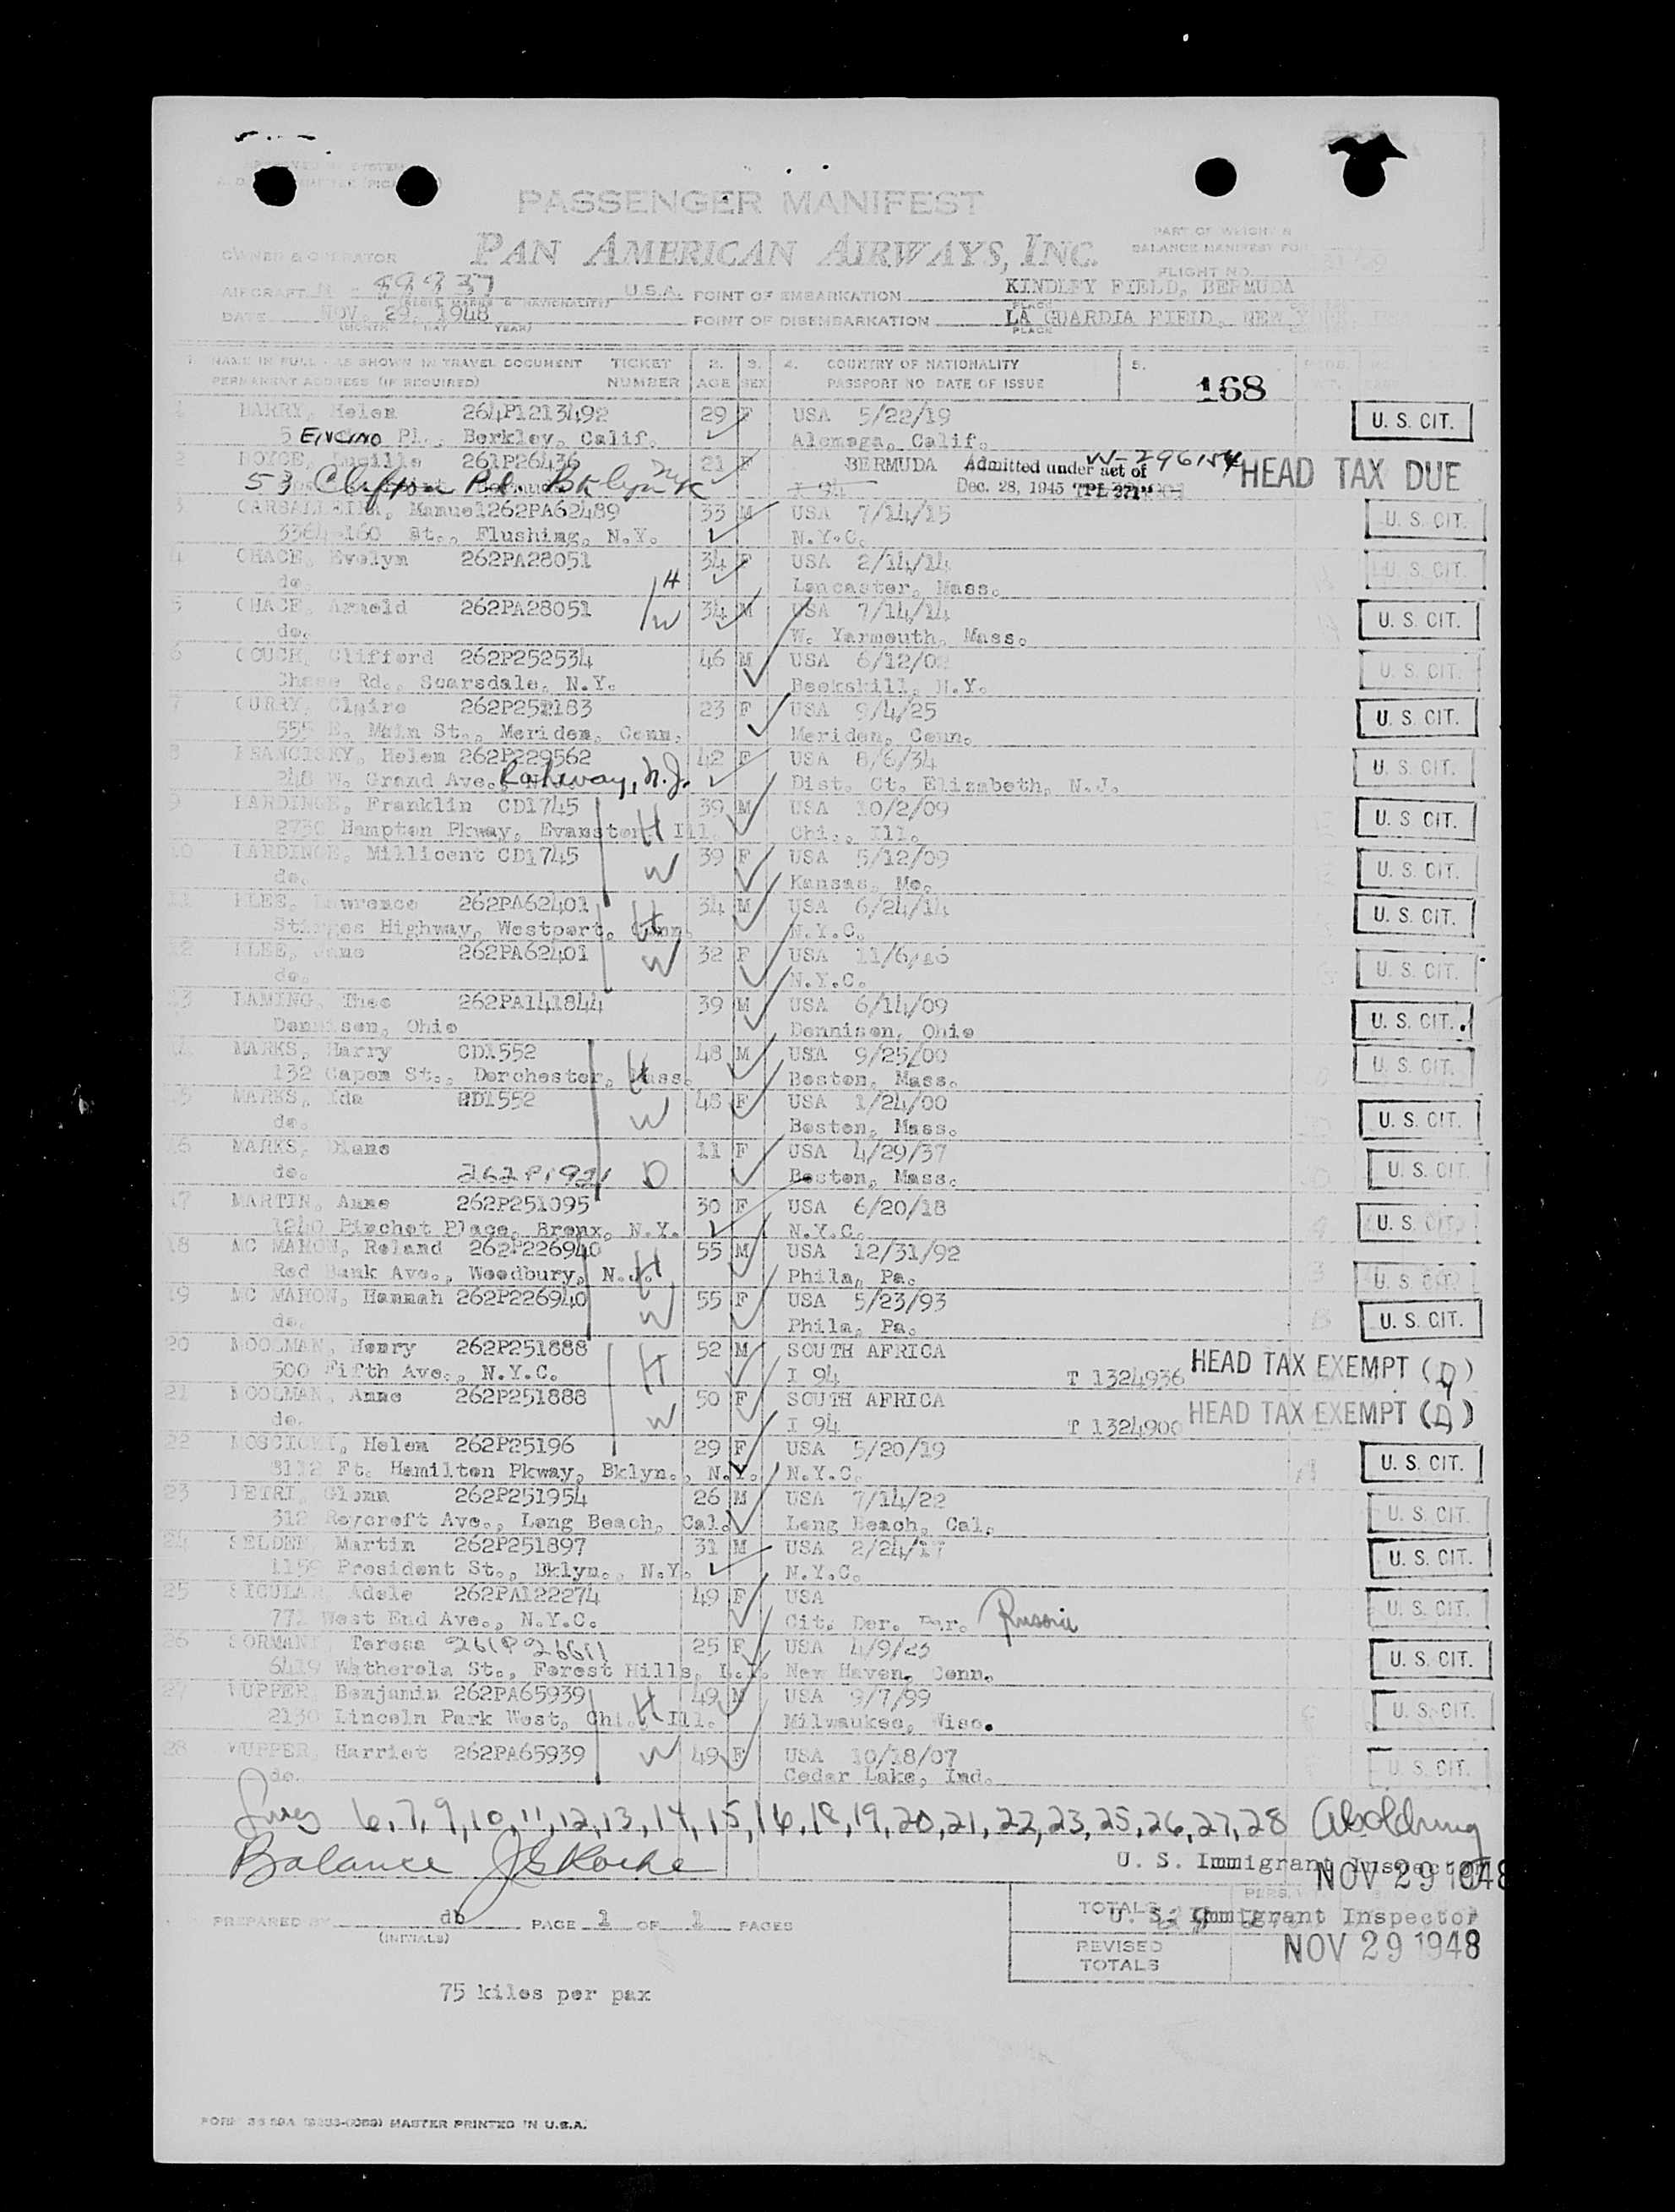 PASSENGER MANIFEST
PAN AMERICAN AIRWAYS, INC.
PART OF WEIGHT &
BALANCE MANIFEST FOR
OWNER & OPERATOR
FLIGHT NO.
AIRCRAFT N - U.S.A. POINT OF EMBARKATION KINDLEY FIELD, BERMUDA
(REGIS. MARKS & NATIONALITY) PLACE
DATE NOV. 29, 1948 POINT OF DISEMBARKATION LA GUARDIA FIELD, NEW
(MONTH DAY YEAR) PLACE
1. NAME IN FULL - AS SHOWN IN TRAVEL DOCUMENT TICKET 2. 3. 4. COUNTRY OF NATIONALITY 5.
PERMANENT ADDRESS (IF REQUIRED) NUMBER AGE SEX PASSPORT NO DATE OF ISSUE 168
1 BARRY, Helen 264P1213492 29 F USA 5/22/19 U. S. CIT.
5 ENCINO Pl., Berkley, Calif. Alemega, Calif.
2 NOYCE, Lucille 261P26436 21 F BERMUDA Admitted under act of HEAD TAX DUE
53 Clifton Pl. Bklyn NY I 94 Dec. 28, 1945 "PL 271"
3 CARBALLEIRA, Manuel 262PA62489 33 M USA 7/14/15 U. S. CIT.
3364-160 St., Flushing, N.Y. N.Y.C.
4 CHACE, Evelyn 262PA28051 34 F USA 2/14/14 U. S. CIT.
do. H Lancaster, Mass.
5 CHACE, Arnold 262PA28051 W 34 M USA 7/14/14 U. S. CIT.
do. W. Yarmouth, Mass.
6 COUCH, Clifford 262P252534 46 M USA 6/12/02 U. S. CIT.
Chase Rd., Scarsdale, N.Y. Beekskill, N.Y.
7 CURRY, Claire 262P252183 23 F USA 9/4/25 U. S. CIT.
555 E. Main St., Meriden, Conn. Meriden, Conn.
8 FRANCISKY, Helen 262P229562 42 F USA 8/6/34 U. S. CIT.
248 W. Grand Ave., Rahway, N.J. Dist. Ct. Elizabeth, N.J.
9 HARDINGE, Franklin CD1745 39 M USA 10/2/09 U. S. CIT.
2730 Hampton Pkway, Evanston, Ill. H Chi., Ill.
10 HARDINGE, Millicent CD1745 39 F USA 5/12/09 U. S. CIT.
do. W Kansas, Mo.
11 KLEE, Lawrence 262PA62401 34 M USA 6/24/14 U. S. CIT.
Sturges Highway, Westport, Conn. H N.Y.C.
12 KLEE, Jane 262PA62401 W 32 F USA 11/6/16 U. S. CIT.
do. N.Y.C.
13 LAMING, Theo 262PA141844 39 M USA 6/14/09 U. S. CIT.
Dennison, Ohio Dennison, Ohio
14 MARKS, Harry CD1552 48 M USA 9/25/00 U. S. CIT.
132 Capen St., Dorchester, Mass. H Boston, Mass.
15 MARKS, Ida CD1552 48 F USA 1/24/00 U. S. CIT.
do. W Boston, Mass.
16 MARKS, Diane 11 F USA 4/29/37 U. S. CIT.
do. 262P1921 D Boston, Mass.
17 MARTIN, Anne 262P251095 30 F USA 6/20/18 U. S. CIT.
1240 Pinchot Place, Bronx, N.Y. N.Y.C.
18 MC MAHON, Roland 262P226940 55 M USA 12/31/92 U. S. CIT.
Red Bank Ave., Woodbury, N.J. H Phila, Pa.
19 MC MAHON, Hannah 262P226940 55 F USA 5/23/93 U. S. CIT.
do. W Phila, Pa.
20 MOOLMAN, Henry 262P251888 52 M SOUTH AFRICA HEAD TAX EXEMPT (D)
500 Fifth Ave., N.Y.C. H I 94 T 1324936
21 MOOLMAN, Anne 262P251888 50 F SOUTH AFRICA HEAD TAX EXEMPT (D)
do. W I 94 T 1324900
22 Helen 262P25196 29 F USA 5/20/19 U. S. CIT.
8112 Ft. Hamilton Pkway, Bklyn., N.Y. N.Y.C.
23 PETRI, Glenn 262P251954 26 M USA 7/14/22 U. S. CIT.
312 Roycroft Ave., Long Beach, Cal. Long Beach, Cal.
24 SELDEN, Martin 262P251897 31 M USA 2/24/17 U. S. CIT.
1159 President St., Bklyn., N.Y. N.Y.C.
25 SICULAR, Adele 262PA122274 49 F USA U. S. CIT.
771 West End Ave., N.Y.C. Cit. Der. Par. Russia
26 SORMANI, Teresa 261P26611 25 F USA 4/9/23 U. S. CIT.
6419 Wetherole St., Forest Hills, L.I. New Haven, Conn.
27 WUPPER, Benjamin 262PA65939 H 49 M USA 9/7/99 U. S. CIT.
2130 Lincoln Park West, Chi., Ill. Milwaukee, Wisc.
28 WUPPER, Harriet 262PA65939 W 49 F USA 10/18/07 U. S. CIT.
do. Cedar Lake, Ind.
6, 7, 9, 10, 11, 12, 13, 14, 15, 16, 18, 19, 20, 21, 22, 23, 25, 26, 27, 28
Balance JS Roche U. S. Immigrant Inspector
NOV 29 1948
PREPARED BY db PAGE 1 OF 1 PAGES TOTALS U. S. Immigrant Inspector
(INITIALS) REVISED TOTALS NOV 29 1948
75 kilos per pax
MASTER PRINTED IN U.S.A.